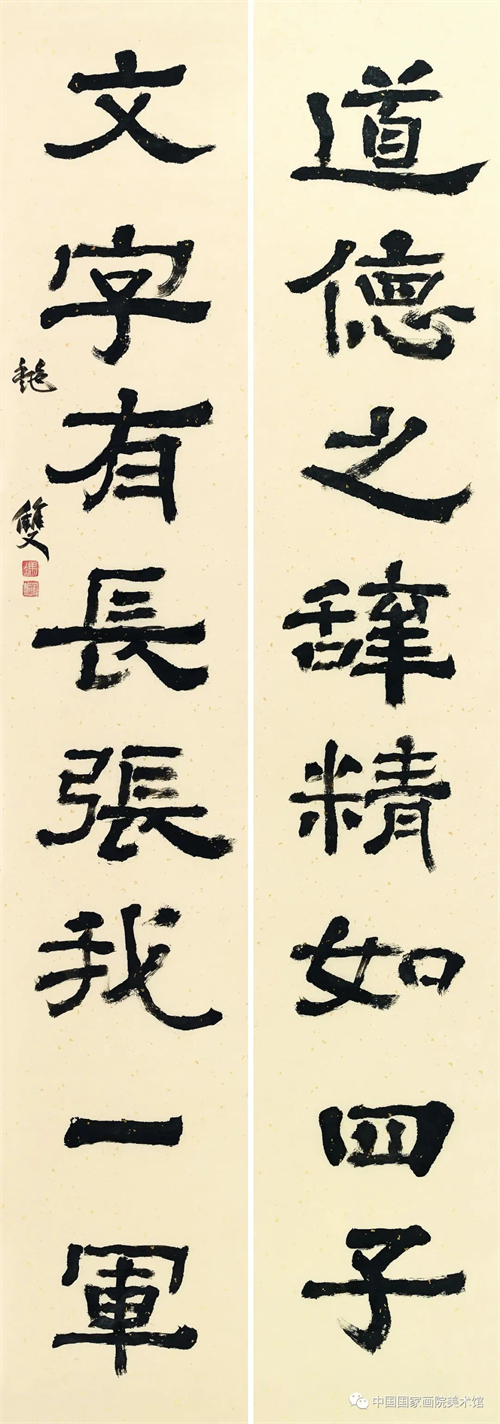 道德之辭精如四子
文字有長張我一軍
雙
中国国家画院美术馆